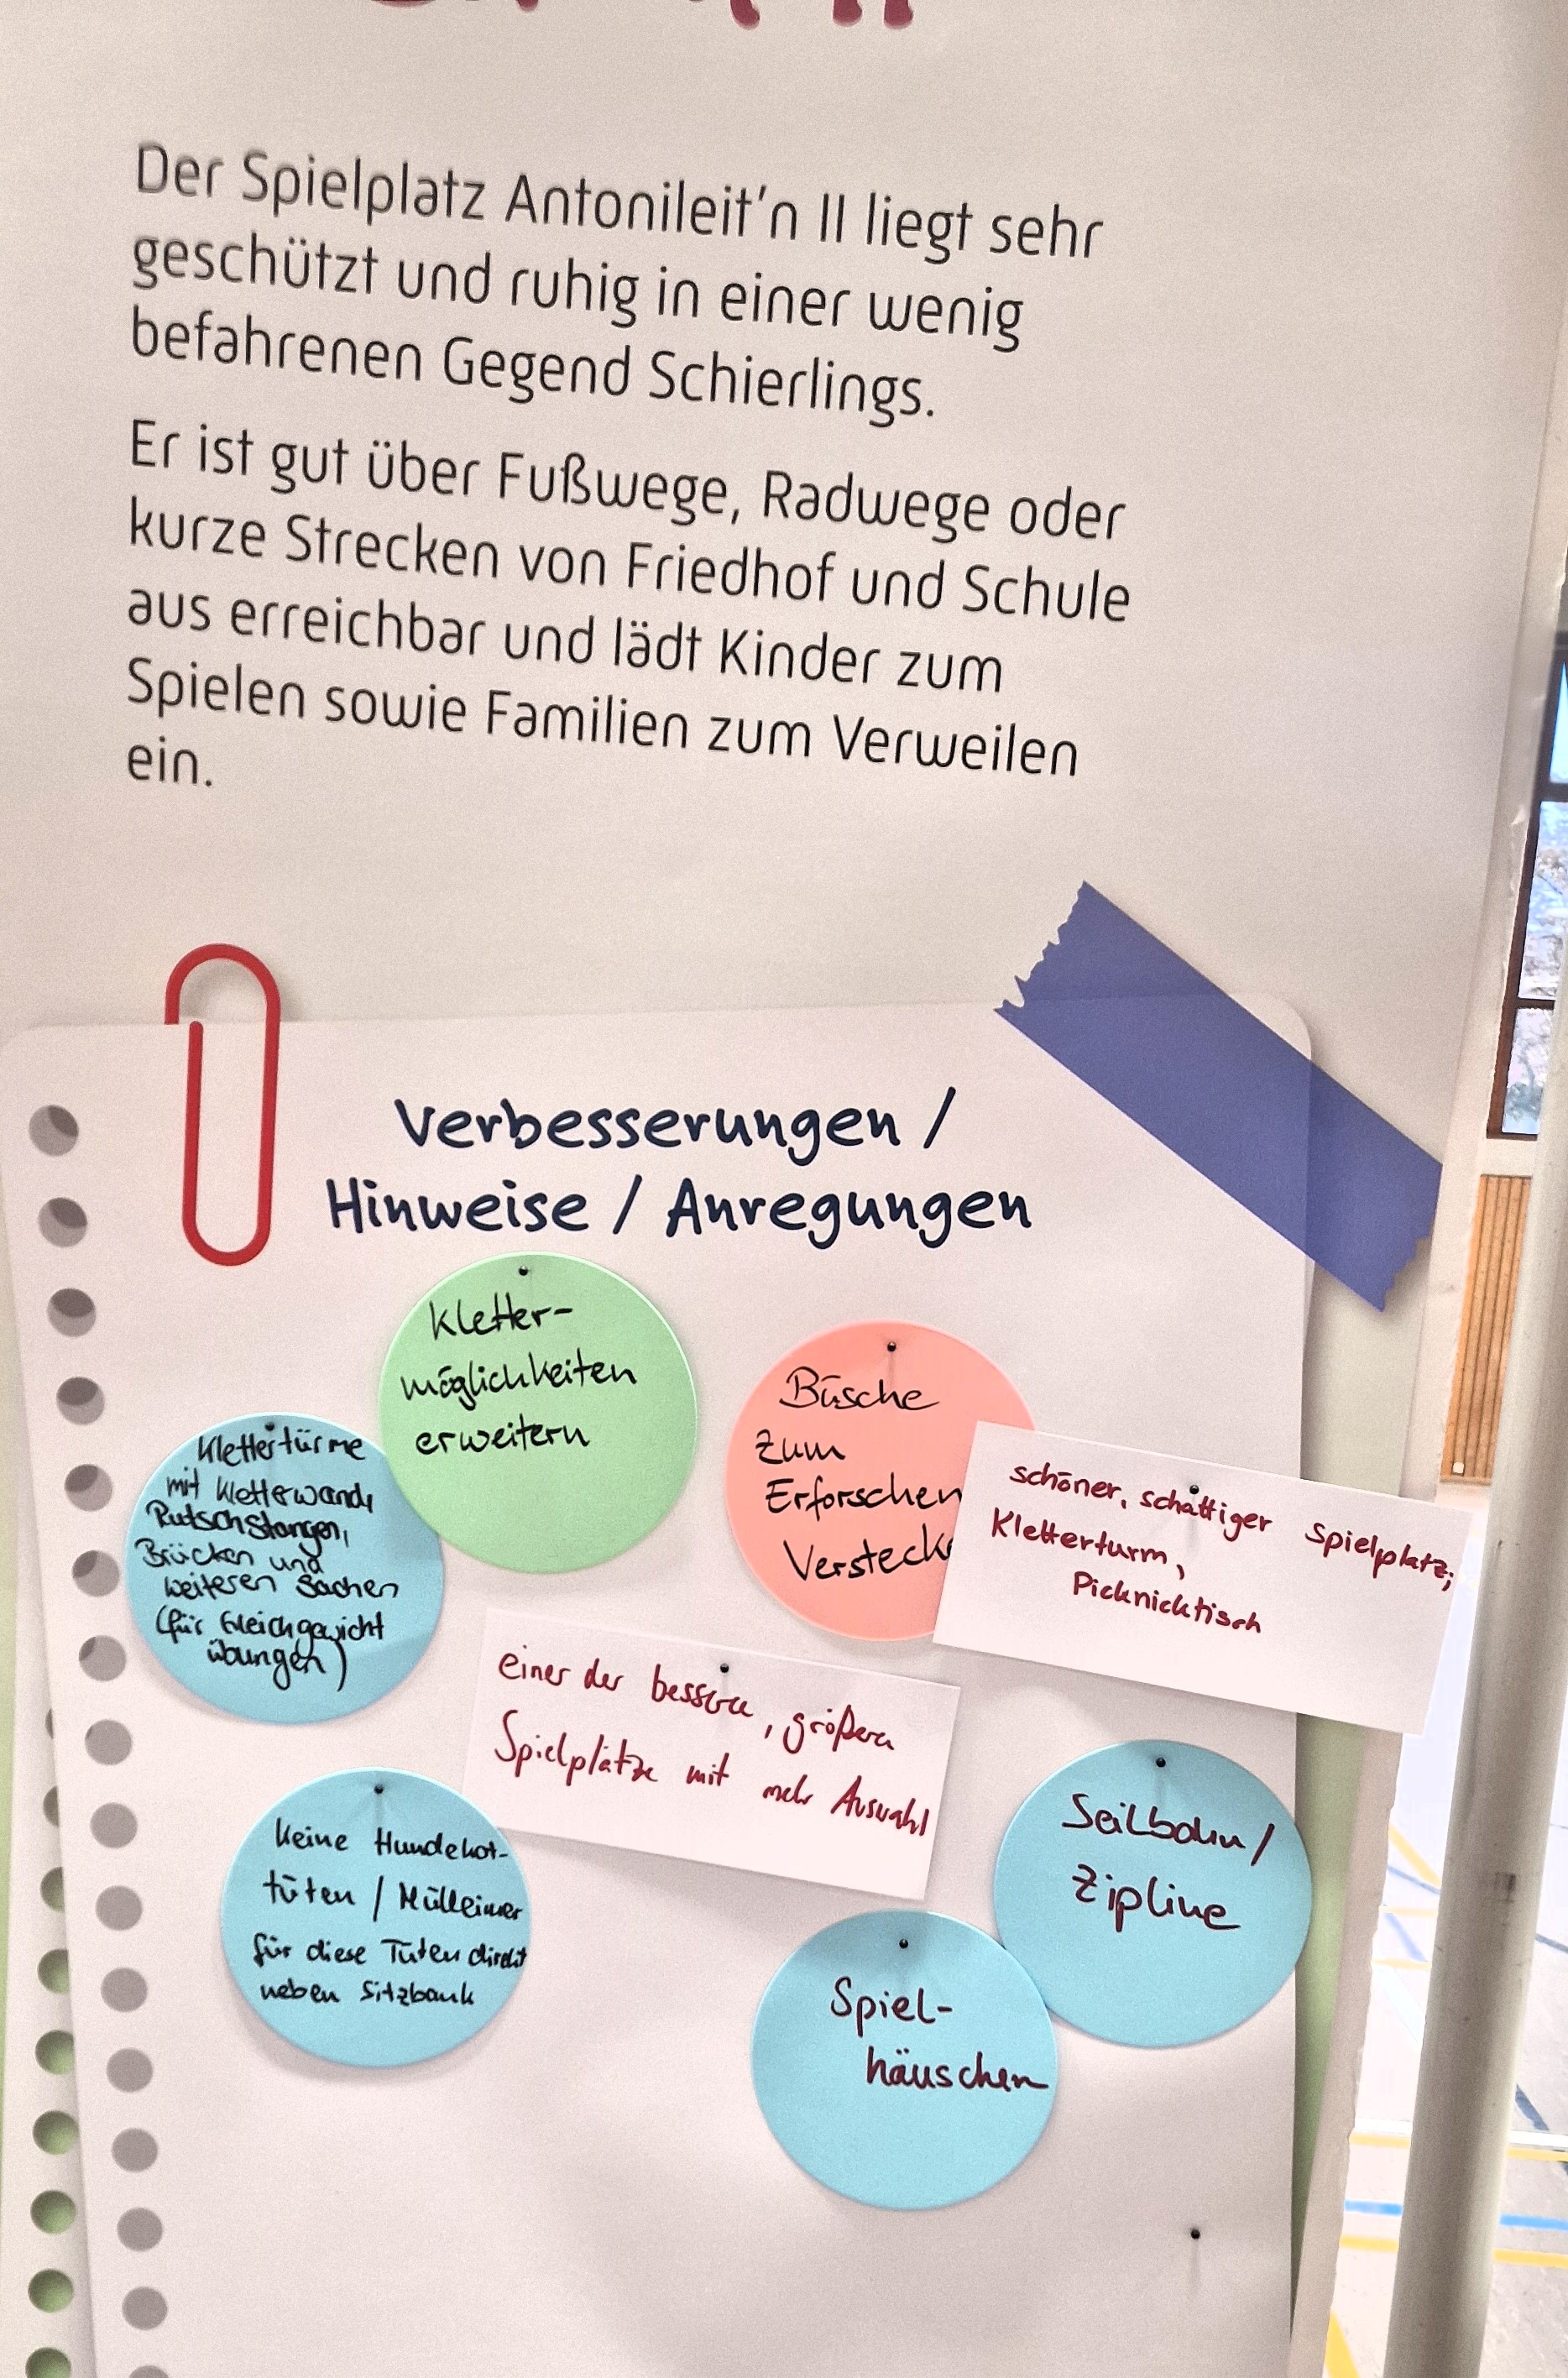 Der Spielplatz Antonileit'n II liegt sehr
geschützt und ruhig in einer wenig
befahrenen Gegend Schierlings.
Er ist gut über Fußwege, Radwege oder
kurze Strecken von Friedhof und Schule
aus erreichbar und lädt Kinder zum
Spielen sowie Familien zum Verweilen
ein.
Verbesserungen /
Hinweise / Anregungen
Kletter-
möglichkeiten
erweitern
Büsche
zum
Erforschen
Versteck
Klettertürme
mit Kletterwand,
Rutschstangen,
Brücken und
weiteren Sachen
(für Gleichgewicht
übungen)
schöner, schattiger Spielplatz;
Kletterturm,
Picknicktisch
einer der bessere, größere
Spielplätze mit mehr Auswahl
keine Hundekot-
tüten / Mülleimer
für diese Tüten direkt
neben Sitzbank
Seilbahn /
Zipline
Spiel-
häuschen